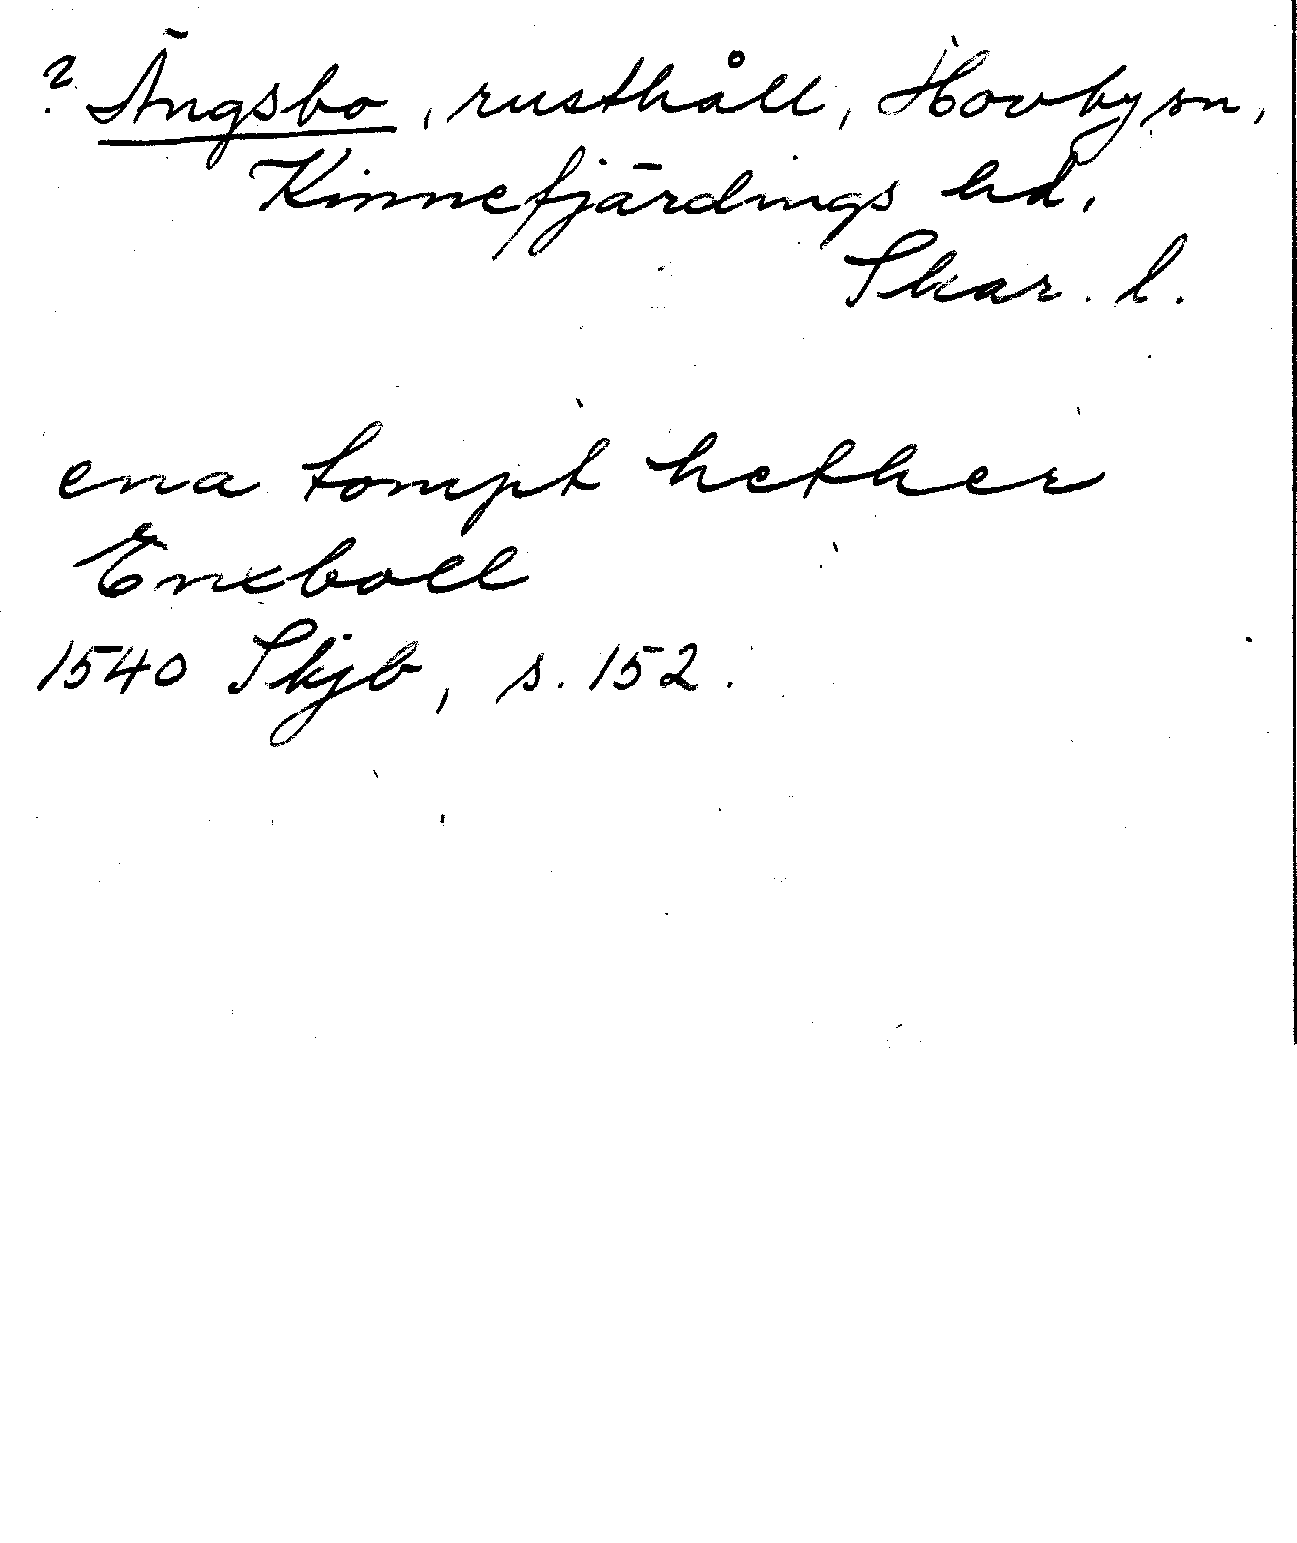 ? Ängsbo, rusthåll, Hovby sn,
Kinnefjärdings hd,
Skar. l.
ena tompt hether
Enxboll
1540 Skjb, s. 152.